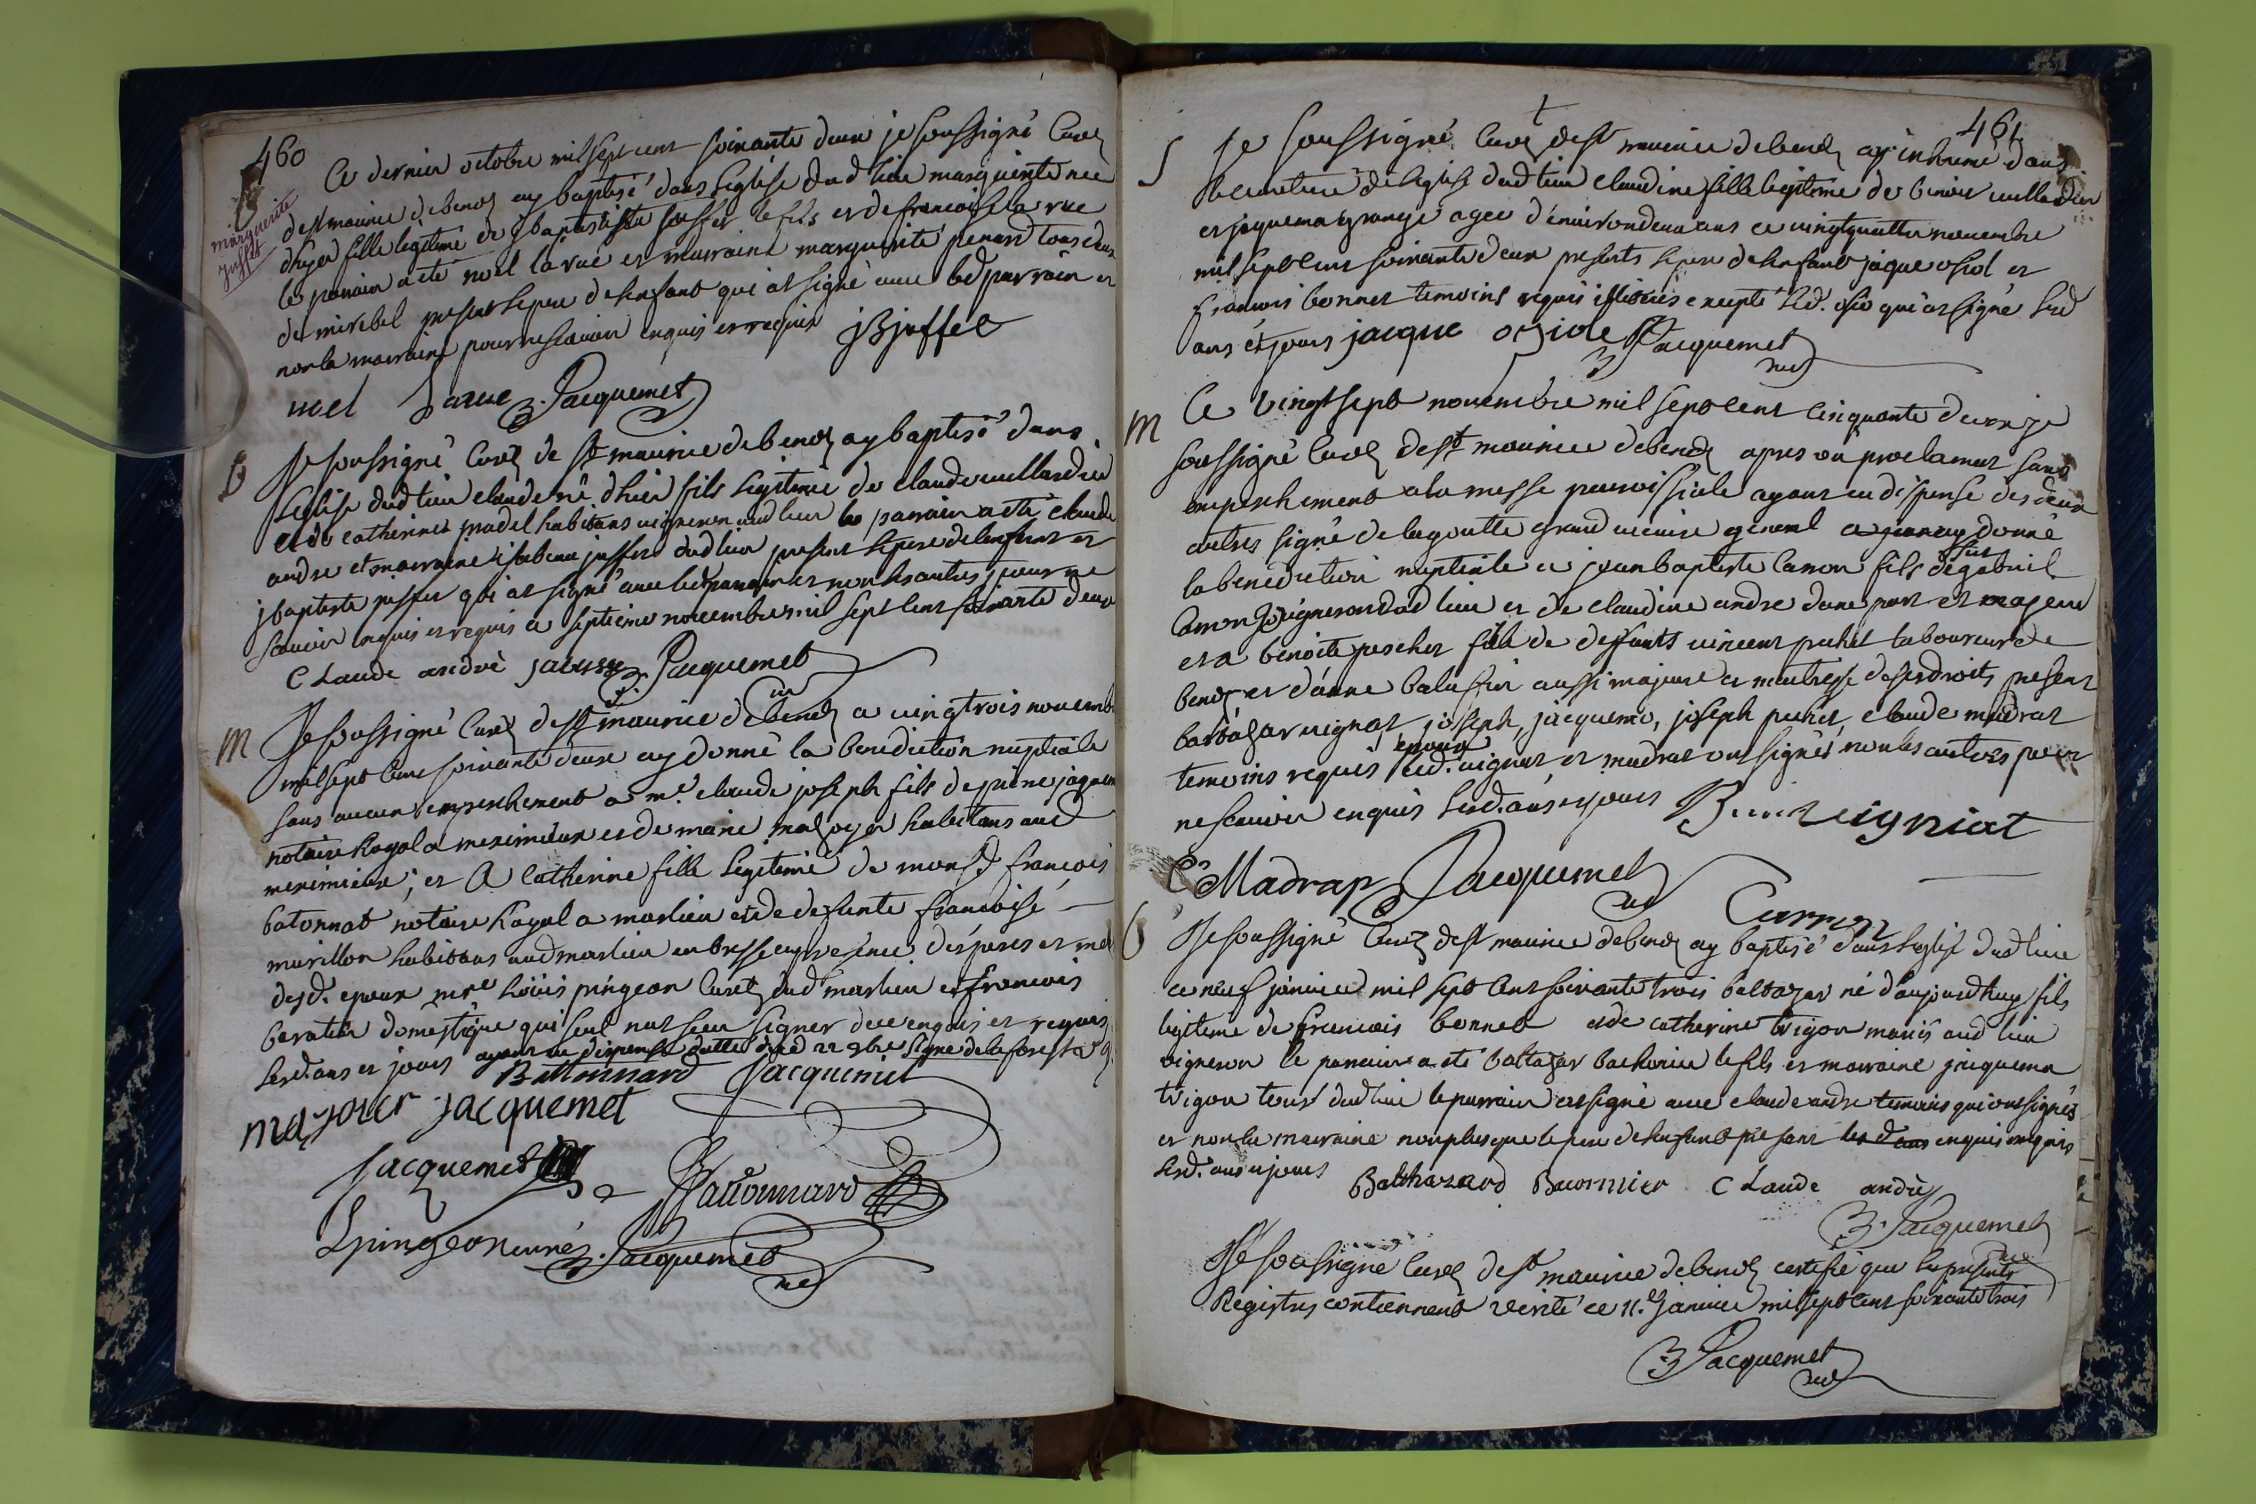 460
marguerite
juffet
Ce dernier octobre mil sept cent soixante deux je soussigné Curé
de st maurice de benos ay baptisé dans leglise dud lieu marguerite née
d'hyer fille legitime de jbaptiste juffet le fils et de francoise larue
le parrain a eté noel larue et marraine marguerite penard tous deux
de miribel present le pere de lenfant qui at signé avec led parrain et
non la marraine pour ne scavoir enquis et requis JBjuffet
noel Larue B. Jacquemet
B
Je soussigné Curé de st maurice de benos ay baptisé dans
l'eglise dud lieu claude né d'hier fils legitime de claude
et de catherine pradel habitans vigneron aud lieu le parrain a eté claude
andre et marraine isabeau juffet dud lieu present le pere de lenfant et
jbaptiste juffet qui at signé avec led parrain et non les autres pour ne
scavoir enquis et requis ce septieme novembre mil sept cent soixante deux
Claude andrè B. Jacquemet
M
Je soussigné Curé de st maurice de benos ce vingt trois novemb
mil sept cent soixante deux ay donné la benediction nuptiale
sans aucun empechement a me claude joseph fils de pierre jaquem
notaire Royal a meximieux et de marie mayoyer habitans aud
meximieux; et A Catherine fille legitime de monsr francois
batonnat notaire Royal a marlieu et de defunte francoise
murillon habitans aud marlieu en bresse en presence des peres et
desd. epoux mre Loüis pingeon Curé dud marlieu et francois
domestique qui seul n'at sceu signer de ce enquis et requis
lesd. ans et jours ayant eu dispense dattée dud 22 9bre signé de la forest v g.
Battonnard Jacquemet
mayoier jacquemet
Jacquemet
Battonnard
Lpingeon curé B. Jacquemet
curé
461
S
Je soussigné Curé de st maurice de benos ay inhumé dans
le cimetiere de leglise dud lieu claudine fille legitime de benoit
et jaquema grange agee d'environ deux ans ce vingt quatre novembre
mil sept cent soixante deux presents le pere de lenfant jaque osiol et
francois bonnet temoins requis illiterés excepté led. osio qui at signé lesd
ans et jours jacque osiole B Jacquemet
curé
M
Ce vingt sept novembre mil sept cent cinquante deux je
soussigné Curé de st maurice de benos apres un proclamat sans
empechement a la messe paroissiale ayant eu dispense des deux
autres signé de lagoutte grand vicaire general donné
la benediction nuptiale a jean baptiste Carron fils de gabriel
Carron vigneron dud lieu et de claudine andre dune part et majeur
et a benoite pecher fille de deffunts vincent pecher laboureur de
benos et d'anne balussin aussi majeure et maitresse de ses droits present
baltazar vignat, joseph, jacquemo, joseph pecher, claude madrat
temoins requis l'epoux led. vignat et madrat ont signés non les autres pour
ne scavoir enquis lesd. ans et jours B vigniat
C Madrap Jacquemet
curé
Carron
B
Je soussigné Curé de st maurice de benos ay baptisé dans leglise dud lieu
ce neuf janvier mil sept cent soixante trois baltazar né d'aujourd'huy fils
legitime de francois bonnet et de catherine trigon mariés aud lieu
vigneron le parrain a eté baltazar le fils et marraine jaquema
trigon tous dud lieu le parrain at signé avec claude andre temoins qui ont signés
et non la marraine non plus que le pere de lenfant present enquis requis
lesd. ans et jours Balthazard Claude andrè
B. Jacquemet
curé
Je soussigné Curé de st maurice de benos certifie que les presents
Registres contiennent verité ce 11. janvier mil sept cent soixante trois
B Jacquemet
curé